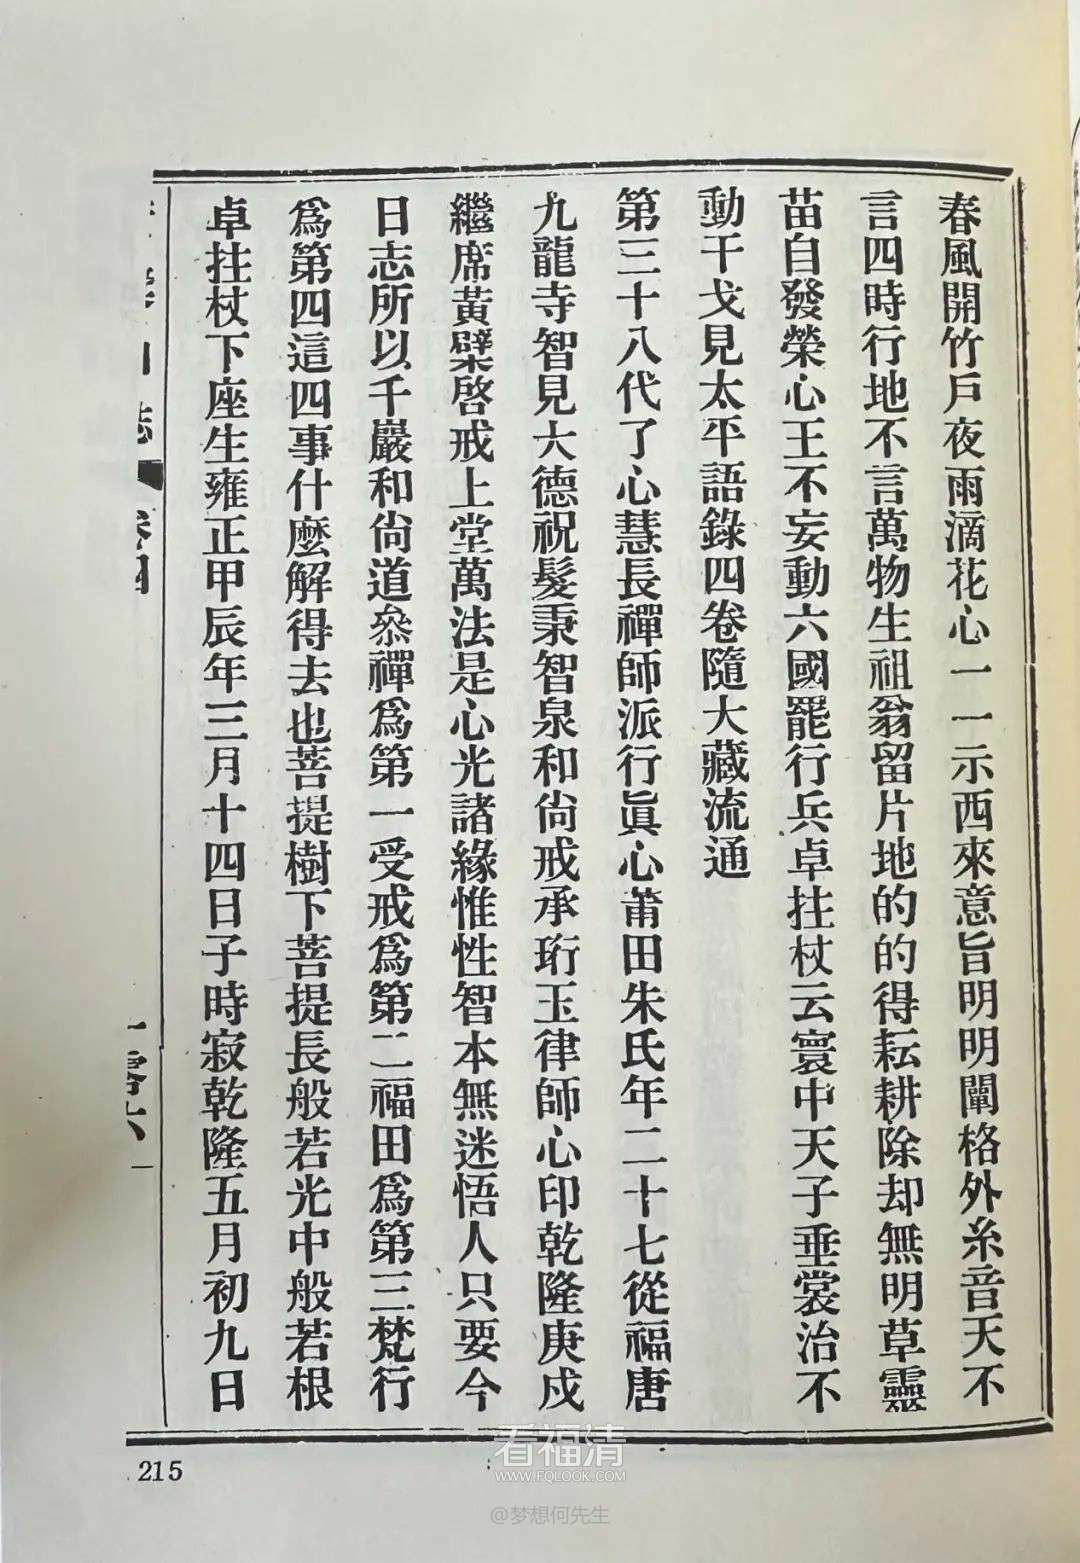 春風開竹戶夜雨滴花心一一示西來意旨明明闡格外糸音天不
言四時行地不言萬物生祖翁留片地的的得耘耕除却無明草靈
苗自發榮心王不妄動六國罷行兵卓拄杖云寰中天子垂裳治不
動干戈見太平語錄四卷隨大藏流通
第三十八代了心慧長禪師派行眞心莆田朱氏年二十七從福唐
九龍寺智見大德祝髮秉智泉和尙戒承珩玉律師心印乾隆庚戍
繼席黃檗啓戒上堂萬法是心光諸緣惟性智本無迷悟人只要今
日志所以千巖和尙道叅禪爲第一受戒爲第二福田爲第三梵行
爲第四這四事什麼解得去也菩提樹下菩提長般若光中般若根
卓拄杖下座生雍正甲辰年三月十四日子時寂乾隆五月初九日
卷四
215
看福清
WWW.FQLOOK.COM
@梦想何先生